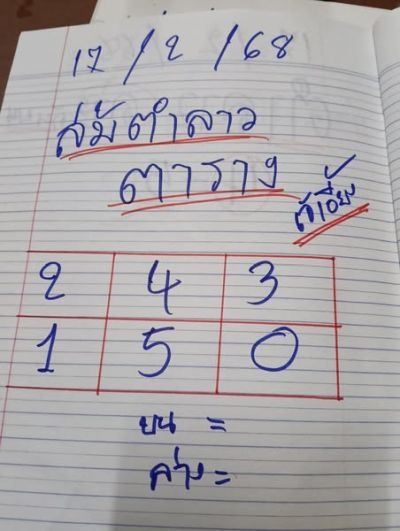 17/2/68
ส้มตำลาว
ตาราง
2 4 3
1 5 0
บน =
ล่าง =